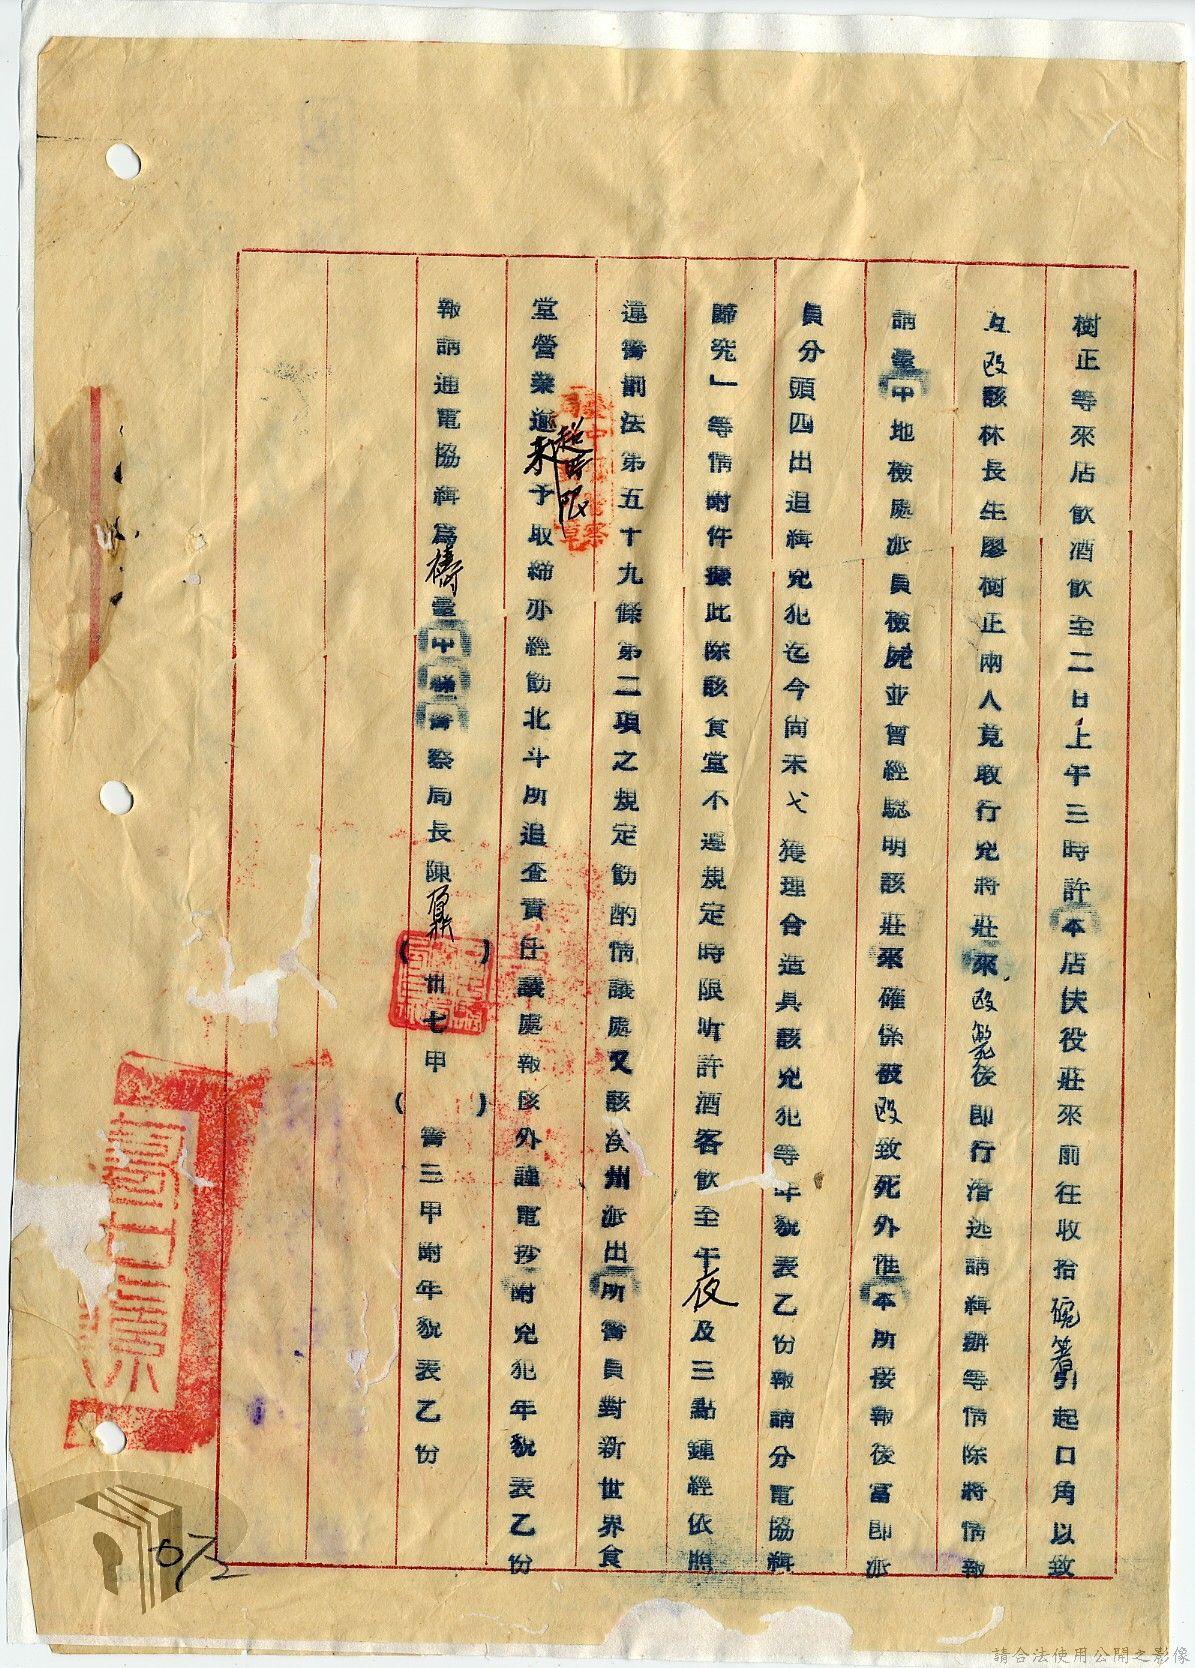 樹正等來店飲酒飲至二日上午三時許本店伕役莊來前往收拾碗箸引起口角以致
互毆該林長生廖樹正兩人竟敢行兇將莊來毆斃後即行潛逃請緝辦等情除將情報
請臺中地檢處派員檢屍並曾經驗明該莊來確係被毆致死外惟本所接報後當即派
員分頭四出追緝兇犯迄今尚未弋獲理合造具該兇犯等年貌表乙份報請分電協緝
歸究」等情附件據此除該食堂不遵規定時限听許酒客飲至午夜及三點鐘經依照
違警罰法第五十九條第二項之規定飭酌情議處又該溪州派出所警員對新世界食
堂營業逾超時限未予取締亦經飭北斗所追查責任議處報核外謹電抄附兇犯年貌表乙份
報請通電協緝為禱臺中縣警察局長陳(卅七甲)警三甲附年貌表乙份
072
請合法使用公開之影像